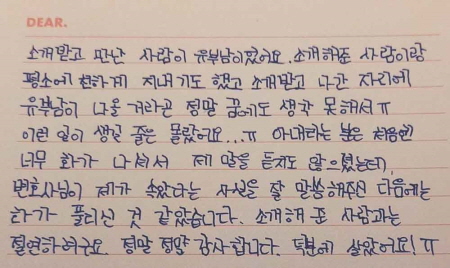 DEAR.
소개받고 만난 사람이 유부남이었어요. 소개해준 사람이랑
평소에 친하게 지내기도 했고 소개받고 나간 자리에
유부남이 나올 거라곤 정말 꿈에도 생각 못해서ㅠ
이런 일이 생길 줄은 몰랐어요...ㅠ 아내라는 분은 처음엔
너무 화가 나셔서 제 말을 듣지도 않으셨는데,
변호사님이 제가 속았다는 사실을 잘 말씀해주신 다음에는
화가 풀리신 것 같았습니다. 소개해 준 사람과는
절연하려구요. 정말 정말 감사합니다. 덕분에 살았어요! ㅠ